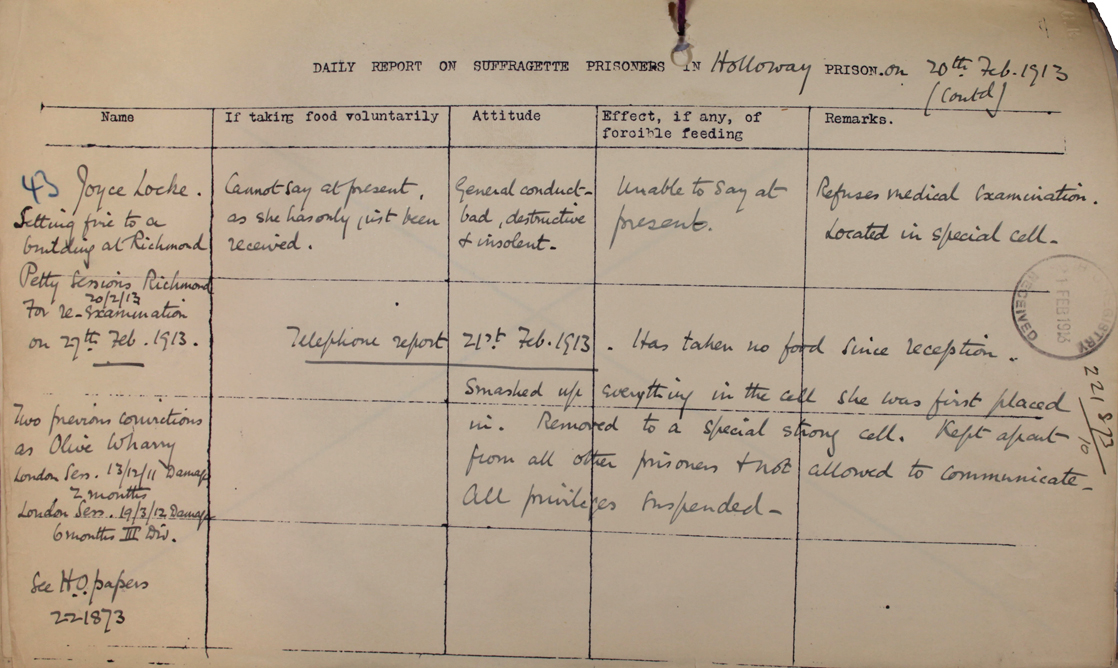 DAILY REPORT ON SUFFRAGETTE PRISONERS IN Holloway PRISON. on 20th Feb. 1913
(Contd)
Name
If taking food voluntarily
Attitude
Effect, if any, of
forcible feeding
Remarks.
43 Joyce Locke.
Setting fire to a
building at Richmond
Petty Sessions Richmond
20/2/13
For re-examination
on 27th Feb. 1913.
Cannot say at present,
as she has only just been
received.
General conduct-
bad, destructive
& insolent.
Unable to say at
present.
Refuses medical examination.
Located in special cell.
Telephone report 21st Feb. 1913. Has taken no food since reception.
Smashed up everything in the cell she was first placed
in. Removed to a special strong cell. Kept apart
from all other prisoners & not allowed to communicate.
All privileges suspended.
Two previous convictions
as Olive Wharry
London Sess. 13/12/11 Damage
2 months
London Sess. 19/3/12 Damage
6 months III Div.
See H.O. papers
221873
RECEIVED
21 FEB 1913
REGISTRY
221873
10